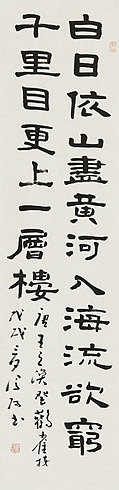 白日依山盡黃河入海流欲窮
千里目更上一層樓
唐王之渙登鸛雀樓
戊戌書